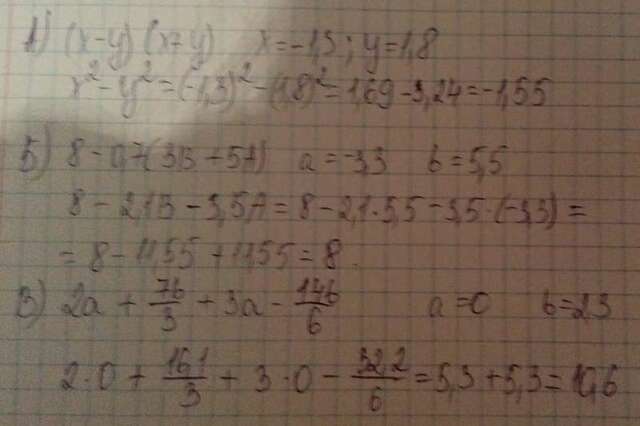 А) (x-y)(x+y) x=-1,3; y=1,8
x²-y²=(-1,3)²-(1,8)²=1,69-3,24=-1,55
Б) 8-0,7(3B+5A) a=-3,3 b=5,5
8-2,1B-3,5A=8-2,1·5,5-3,5·(-3,3)=
=8-11,55+11,55=8.
В) 2a+7b/3+3a-14b/6 a=0 b=2,3
2·0+16,1/3+3·0-32,2/6=5,3+5,3=10,6